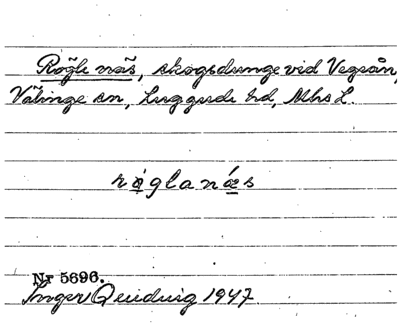 Rögle näs, skogsdunge vid Vegeån,
Välinge sn, Luggude hd, Mhs L.
röglanæs
Nr 5696.
Inger 1947.